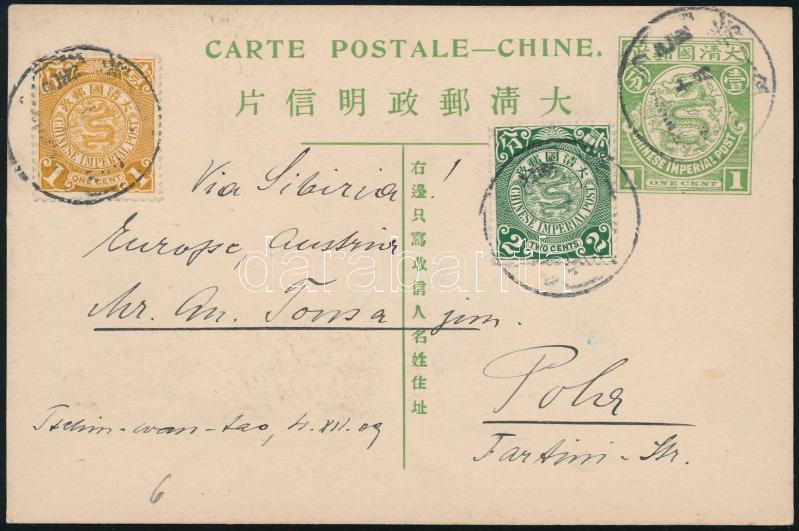 CARTE POSTALE—CHINE.
片信明政郵清大
大清國郵政
壹
分
CHINESE IMPERIAL POST
1 ONE CENT 1
大清國郵政
CHINESE IMPERIAL POST
1 ONE CENT 1
貳
分
大清國郵政
CHINESE IMPERIAL POST
2 TWO CENTS 2
右邊只寫收信人名姓住址
Via Sibiria!
Europe, Austria
Mr. An. Tonsa jun.
Pola
Tartini-Str.
Tschin-wan-tao, 4.XII.09
6
darabanth